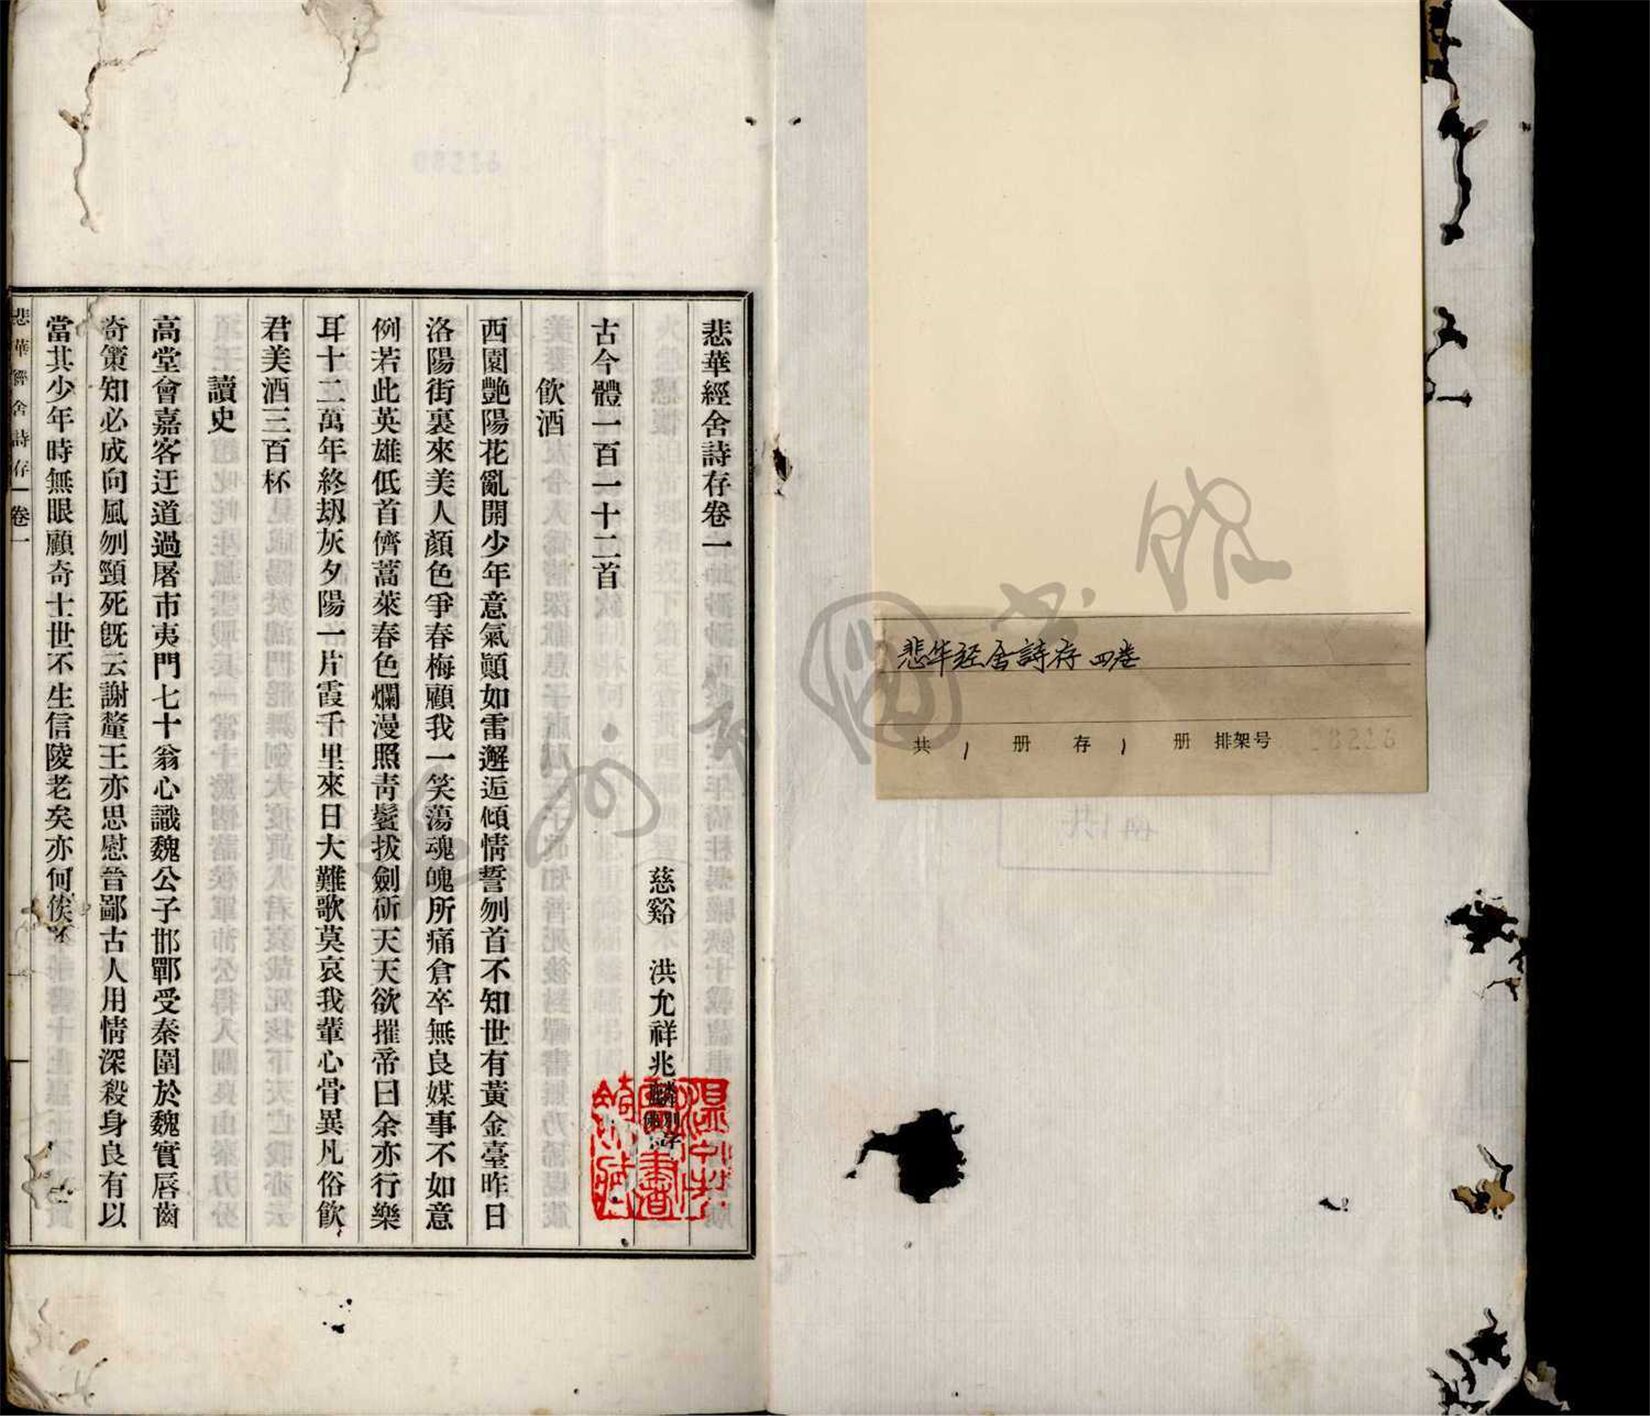 悲华经舍詩存 四卷
共 1 册 存 1 册 排架号 28226
悲華經舍詩存卷一
慈谿 洪允祥兆
古今體一百一十二首
飲酒
西園艷陽花亂開少年意氣顛如雷邂逅傾情誓刎首不知世有黃金臺昨日
洛陽街裏來美人顏色爭春梅顧我一笑蕩魂魄所痛倉卒無良媒事不如意
例若此英雄低首儕蒿萊春色爛漫照青鬢拔劍斫天天欲摧帝曰余亦行樂
耳十二萬年終劫灰夕陽一片霞千里來日大難歌莫哀我輩心骨異凡俗飲
君美酒三百杯
讀史
高堂會嘉客迂道過屠市夷門七十翁心識魏公子邯鄲受秦圍於魏實唇齒
奇策知必成向風刎頸死旣云謝釐王亦思慰晉鄙古人用情深殺身良有以
當其少年時無眼顧奇士世不生信陵老矣亦何俟
悲華經舍詩存 卷一